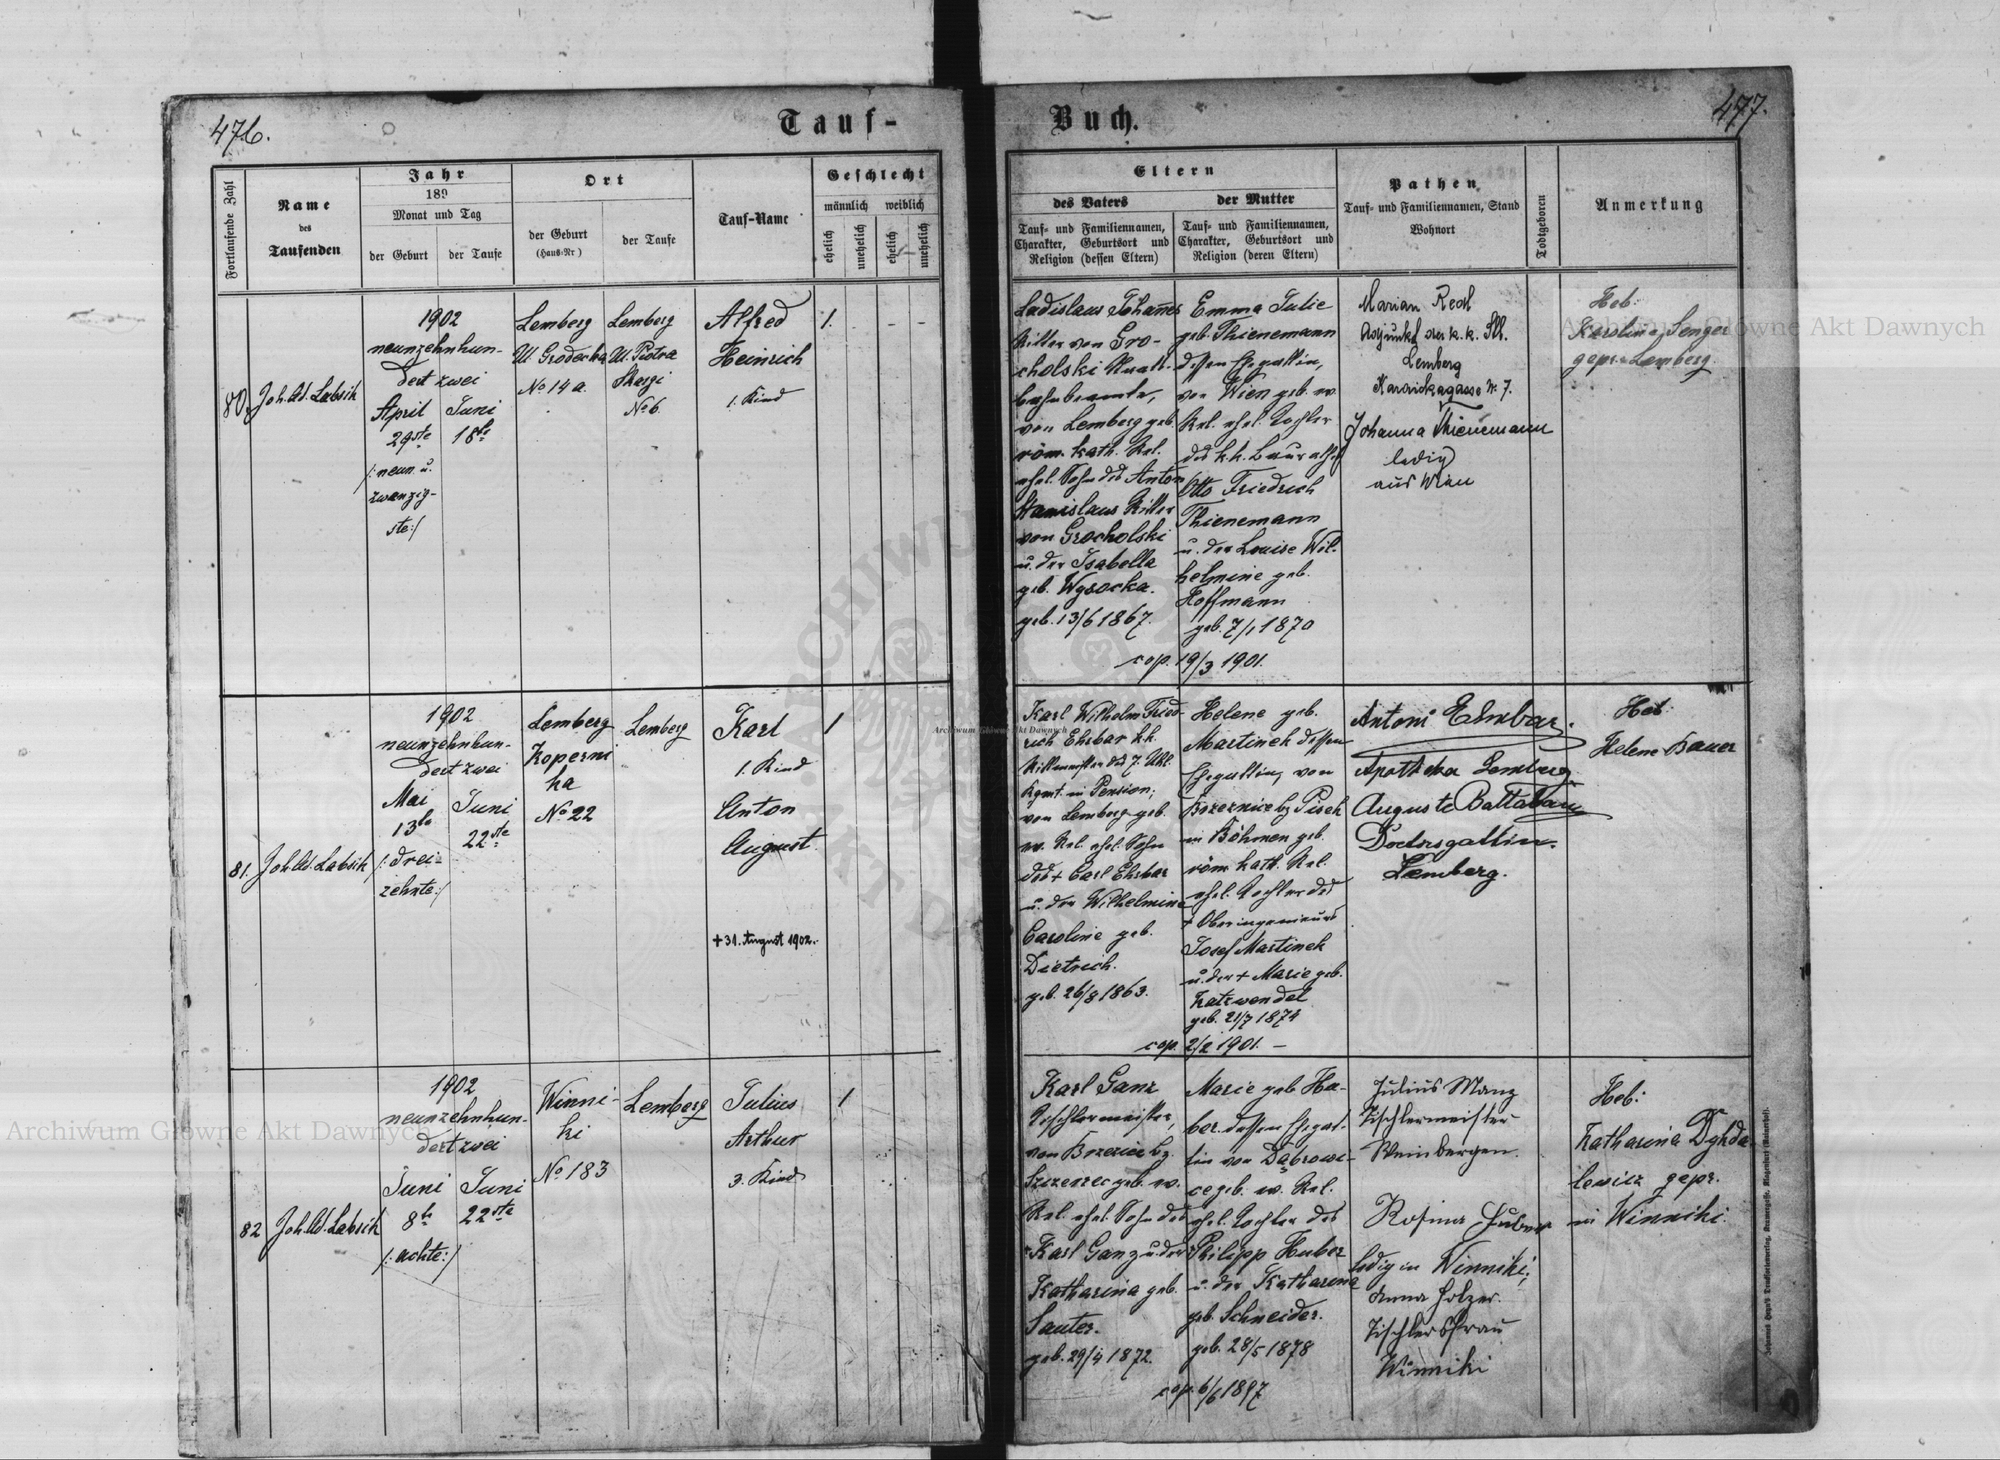 476.
Tauf-
Buch.
477.
Fortlaufende Zahl
Name
des
Taufenden
Jahr
189
Monat und Tag
der Geburt
der Taufe
Ort
der Geburt
(Haus-Nr)
der Taufe
Tauf-Name
Geschlecht
männlich weiblich
ehelich
unehelich
ehelich
unehelich
Eltern
des Vaters
Tauf- und Familiennamen,
Charakter, Geburtsort und
Religion (dessen Eltern)
der Mutter
Tauf- und Familiennamen,
Charakter, Geburtsort und
Religion (deren Eltern)
Pathen
Tauf- und Familiennamen, Stand
Wohnort
Todtgeboren
Anmerkung
80.
Joh. Ad. Labsik
1902
neunzehnhun-
dert zwei
April
29ste
/:neun u.
zwanzig-
ste:/
Juni
18te
Lemberg
Ul. Grodecka
No 14 a.
Lemberg
Ul. Piotra
Skargi
No 6.
Alfred
Heinrich
1. Kind
1.
- - -
Ladislaus Johannes
Ritter von Gro-
cholski
von Lemberg geb.
röm. kath. Rel.
ehel. Sohn des Anton
Stanislaus Ritter
von Grocholski
u. der Isabella
geb. Wysocka.
geb. 13/6 1867.
Emma Julie
geb. Thienemann
dessen Ehegattin,
von Wien geb. ev.
Rel. ehel. Tochter
des k. k. Baurathes
Otto Friedrich
Thienemann
u. der Louise Wil-
helmine geb.
Hoffmann
geb. 7/1 1870
cop. 19/3 1901.
Marian Redl
Adjunkt der k. k. Stb.
Lemberg
No 7.
Johanna Thienemann
ledig
aus Wien
Heb:
Karoline Senger
gepr. Lemberg.
81.
Joh. Ad. Labsik
1902
neunzehnhun-
dert zwei
Mai
13te
/:drei-
zehnte:/
Juni
22ste
Lemberg
Koperni
ka
No 22
Lemberg
Karl
1. Kind
Anton
August
+ 31. August 1902.
1
Karl Wilhelm Fried-
rich Ehrbar k. k.
Rittmeister des 7. Uhl.
Rgmt. in Pension;
von Lemberg geb.
ev. Rel. ehel. Sohn
des + Carl Ehrbar
u. der Wilhelmine
Caroline geb.
Dietrich.
geb. 26/8 1863.
Helene geb.
Martinek dessen
Ehegattin, von
Brzeznice by Pisek
in Böhmen geb.
röm. kath. Rel.
ehel. Tochter des
+ Oberingenieurs
Josef Martinek
u. der + Marie geb.
Katzwendel
geb. 21/7 1874
cop. 2/2 1901. -
Antoni Ehrbar.
Apotheka Lemberg
Auguste
Doctorsgattin.
Lemberg.
Heb:
Helene Bauer
82
Joh. Ad. Labsik
1902
neunzehnhun-
dert zwei
Juni
8te
/:achte:/
Juni
22ste
Winni-
ki
No 183
Lemberg
Julius
Arthur
3. Kind
1
Karl Ganz
Tischlermeister,
von Brzezice by.
Szczerzec geb. ev.
Rel. ehel. Sohn des
Karl Ganz u. der
Katharina geb.
Sauter.
geb. 29/4 1872.
Marie geb. Hu-
ber dessen Ehegat-
tin von Dąbrowi-
ce geb. ev. Rel.
ehel. Tochter des
Philipp Huber
u. der Katharina
geb. Schneider.
geb. 28/5 1878
cop. 6/6 1897
Julius Manz
Tischlermeister
Weinbergen.
Rosina Huber
ledig in Winniki;
Anna Holzer.
Tischlersfrau
Winniki
Heb:
Katharina Dyhda-
lewicz gepr.
in Winniki.
Archiwum Główne Akt Dawnych
Archiwum Główne Akt Dawnych
Archiwum Główne Akt Dawnych